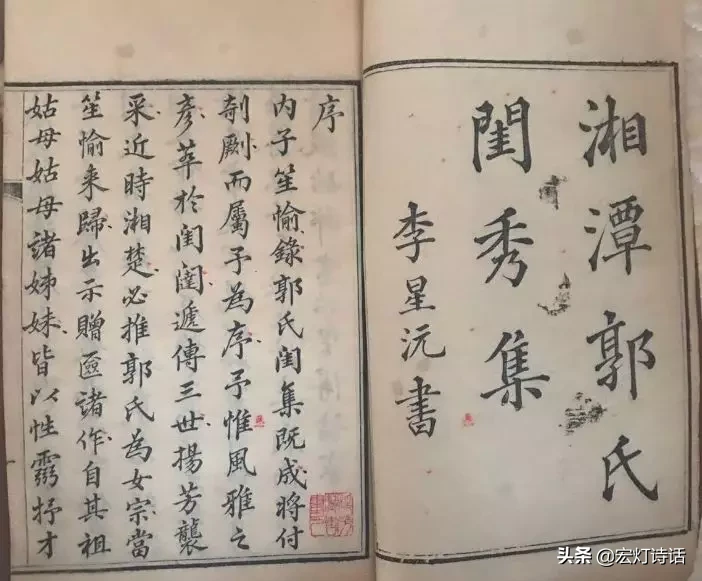 湘潭郭氏
閨秀集
李星沅書
序
內子笙愉錄郭氏閨集既成將付
剞劂而屬予為序予惟風雅之
彥萃於閨闥遞傳三世揚芳襲
采近時湘楚必推郭氏為女宗當
笙愉來歸出示贈奩諸作自其祖
姑母姑母諸姊妹皆以性靈抒才
头条 @宏灯诗话